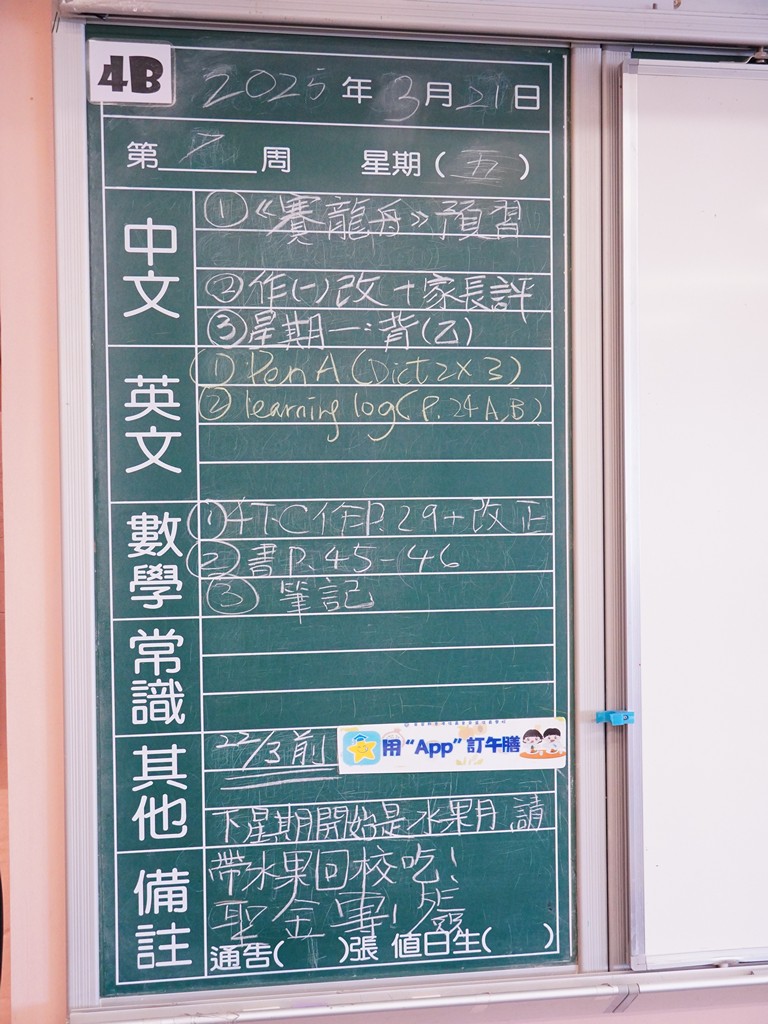 4B
2025年3月21日
第7周 星期(五)
中文
①《賽龍舟》預習
②作(一)改+家長評
③星期一:背(乙)
英文
① Pen A (Dict 2x3)
② learning log (P.24 A,B)
數學
① 4T-C作P.29+改正
② 書P.45-46
③ 筆記
常識
其他
22/3前 用“App”訂午膳
下星期開始是水果月,請
備註
帶水果回校吃!
金
通告( )張 值日生( )